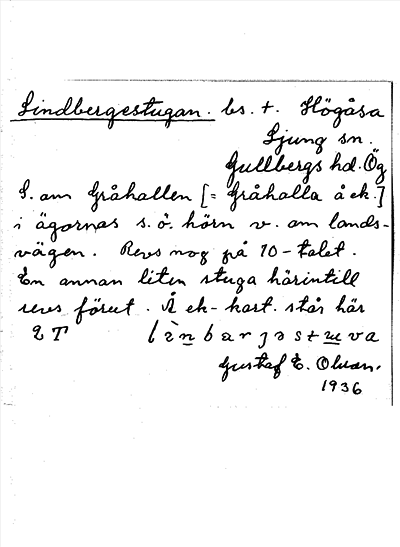 Lindbergestugan. bs. t. Högåsa
Ljung sn.
Gullbergs hd. Ög
S. om Gråhallen [= Gråhalla å ek.]
i ägornas s.ö. hörn v. om lands-
vägen. Revs nog på 70-talet.
En annan liten stuga härintill
revs förut. Å ek-kart. står här
2 T lìnbarjəstɯva
Gustaf E. Olsson.
1936